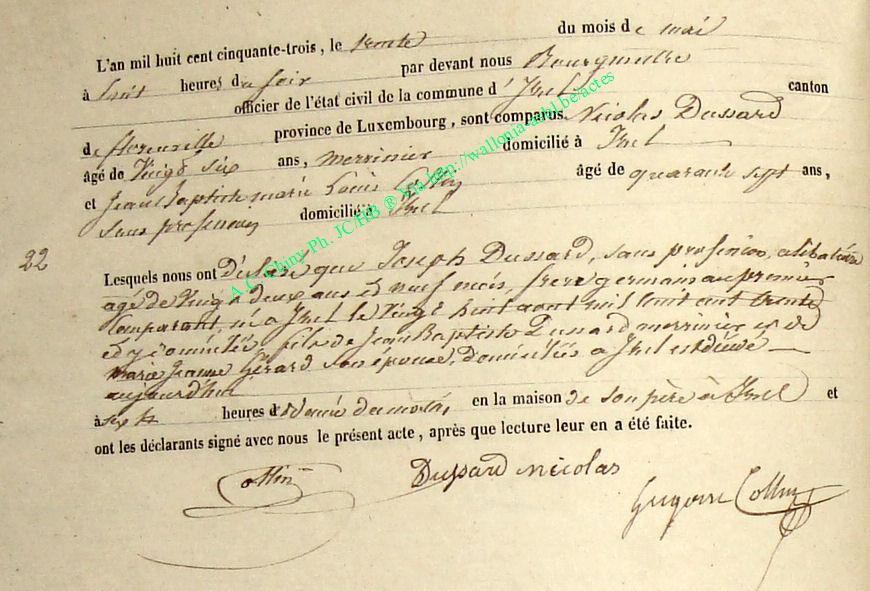 L'an mil huit cent cinquante-trois, le trente du mois de mai
à huit heures du soir par devant nous Bourgmestre
officier de l'état civil de la commune d'Izel canton
de florenville province de Luxembourg, sont comparus Nicolas Dussard
âgé de Vingt six ans, merrinier domicilié à Izel
et Jean Baptiste marie Louis âgé de quarante sept ans,
sans profession domicilié à Izel
22
Lesquels nous ont Déclaré que Joseph Dussard, sans profession, célibataire
agé de Vingt deux ans et neuf mois, frere germain au premier
comparant, né a Izel le Vingt aout mil huit cent trente
et y domicilié, fils de Jean Baptiste Dussard merrinier et de
Marie Jeanne Gérard son épouse, domiciliés a Izel est décédé
aujourd'hui
à six ½ heures du matin, en la maison de son père à Izel et
ont les déclarants signé avec nous le présent acte, après que lecture leur en a été faite.
Collin Dussard Nicolas
Grégoire Collin
A.C. Chiny Ph. JC/HB ® Via http://wallonia-asbl.be/actes